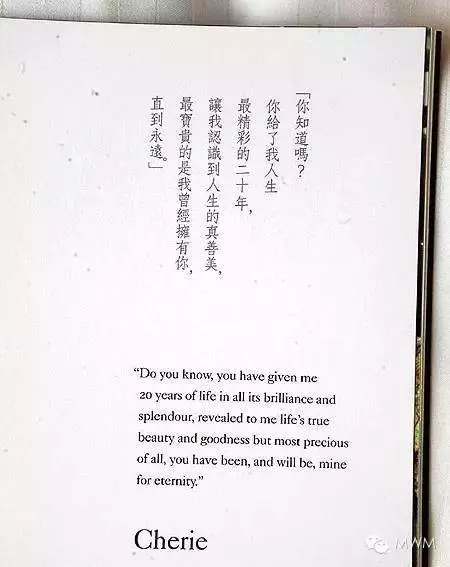 「你知道嗎？
你給了我人生
最精彩的二十年，
讓我認識到人生的真善美，
最寶貴的是我曾經擁有你，
直到永遠。」
“Do you know, you have given me
20 years of life in all its brilliance and
splendour, revealed to me life’s true
beauty and goodness but most precious
of all, you have been, and will be, mine
for eternity.”
Cherie
MWM